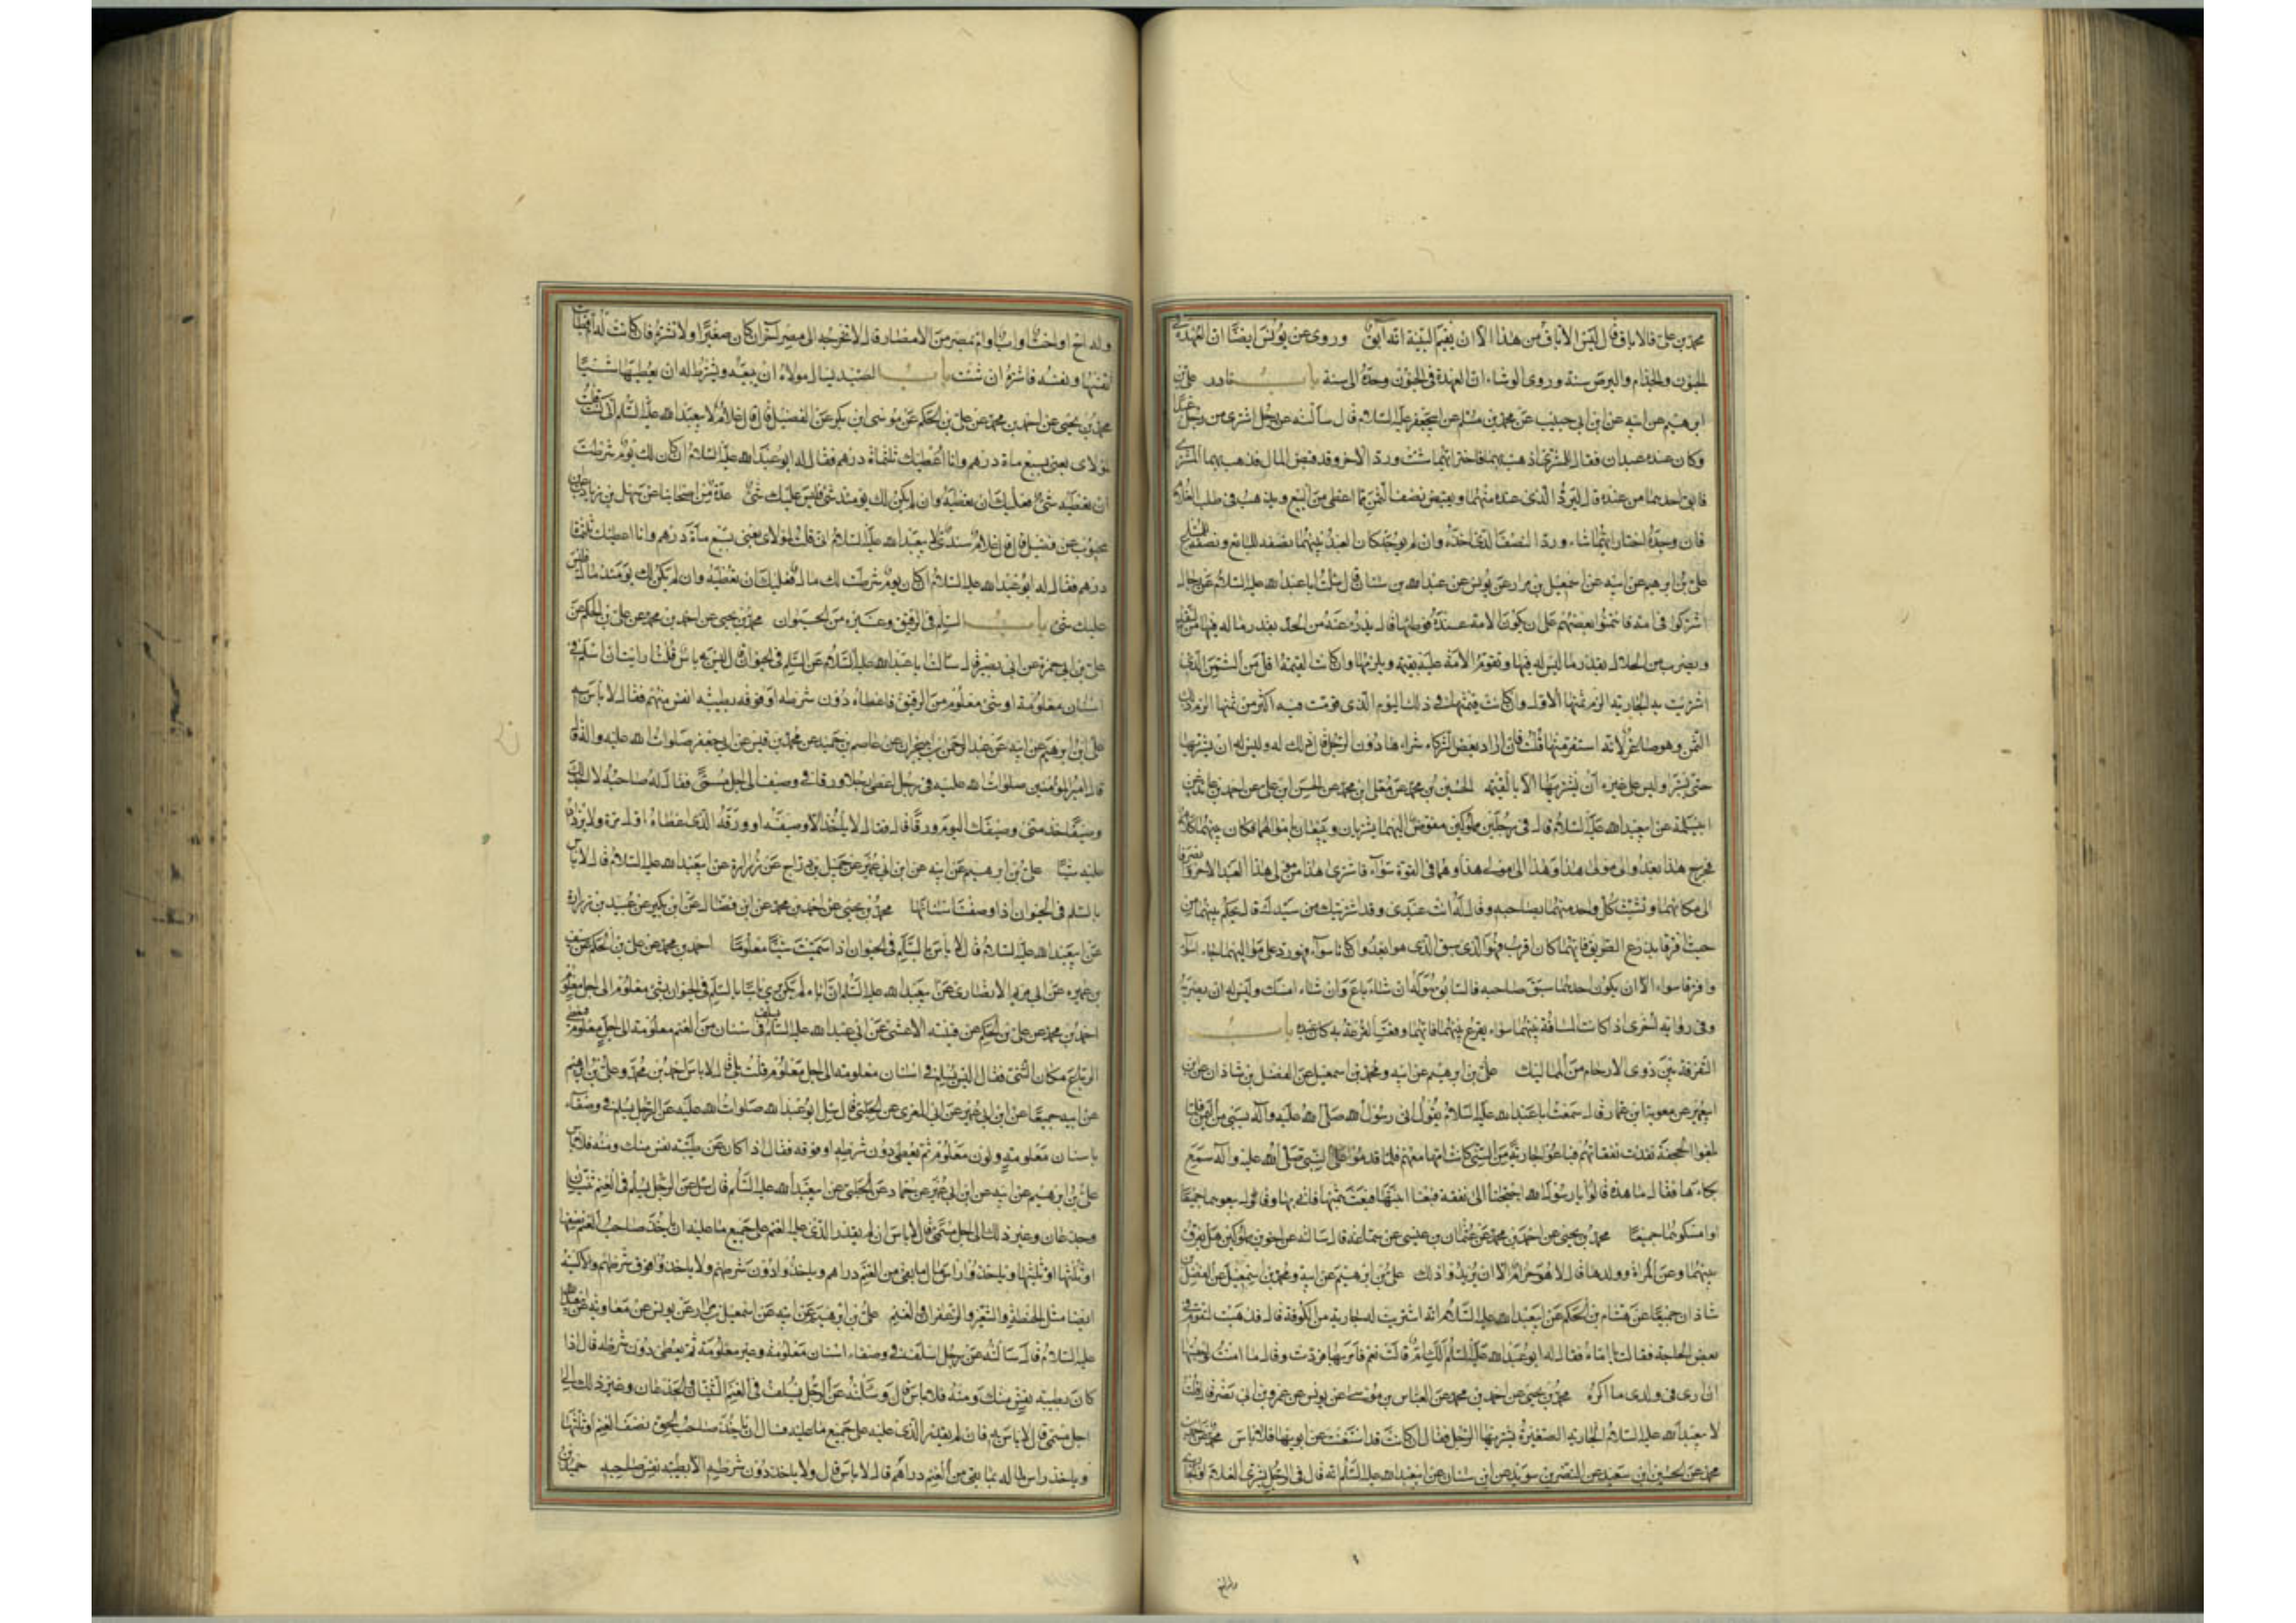 محمد بن علي قالا الاباق قال ليس الاباق من هذا الا ان يقيم البينة انه ابق وروى عن يونس ايضا ان العهدة في
الجنون والجذام والبرص سنة وروى الوشاء ان العهدة في الجنون وحده الى سنة باب نادر علي بن
ابرهيم عن ابيه عن ابن ابي حبيب عن محمد بن مسلم عن ابيجعفر عليه السلام قال سالته عن رجل اشترى من رجل عبدا
وكان عنده عبدان فقال للمشتري اذهب بهما فاختر ايهما شئت ورد الاخر وقد قبض المال فذهب بهما المشتري
فابق احدهما من عنده قال ليرد الذي عنده منهما ويقبض نصف الثمن مما اعطى من البيع ويذهب في طلب الغلام
فان وجده اختار ايهما شاء ورد النصف الذي اخذ وان لم يوجد كان العبد بينهما نصفه للبايع ونصفه للمبتاع
علي بن ابرهيم عن ابيه عن اسمعيل بن مرار عن يونس عن عبد الله بن سنان قال سئلت ابا عبد الله عليه السلام عن رجال
اشتركوا في امة فائتمنوا بعضهم على ان يكون الامة عنده فوطئها قال يدرء عنه من الحد بقدر ماله فيها من النقد
ويضرب من الحد بقدر ما ليس له فيها وتقوم الامة عليه بقيمة ويلزمها وان كانت القيمة اقل من الثمن الذي
اشتريت به الجارية الزم ثمنها الاول وان كانت قيمتها في ذلك اليوم الذي قومت فيه اكثر من ثمنها الزم ذلك
الثمن وهو صاغر لانه استفرشها قلت فان اراد بعض الشركاء شراءها دون الرجل قال ذلك له وليس له ان يشتريها
حتى يستبرا وليس على غيره ان يشتريها الا بالقيمة الحسين بن محمد عن معلى ابن محمد عن الحسن ابن علي عن احمد بن عائذ عن
ابي سلمة عن ابيعبد الله عليه السلام قال في رجلين مملوكين مفوض اليهما يشتريان ويبيعان باموالهما فكان بينهما كلام
فخرج هذا يعدو الى مولى هذا وهذا الى مولى هذا وهما في القوة سواء فاشترى هذا من مولى هذا العبد الاخر وانصرفا
الى مكانهما وتشبث كل واحد منهما بصاحبه وقال له انت عبدي وقد اشتريتك من سيدك قال يحكم بينهما من
حيث افترقا يذرع الطريق فايهما كان اقرب فهو الذي سبق الذي هو ابعد وان كانا سواء فهو رد على مواليهما جاءا سواء
وافترقا سواء الا ان يكون احدهما سبق صاحبه فالسابق هو له ان شاء باع وان شاء امسك وليس له ان يضربه
وفي رواية اخرى اذا كانت المسافة بينهما سواء يقرع بينهما فايهما وقعت القرعة به كان عبده باب
التفرقة بين ذوي الارحام من المماليك علي بن ابرهيم عن ابيه ومحمد بن اسمعيل عن الفضل بن شاذان عن ابن
ابي عمير عن معوية ابن عمار قال سمعت ابا عبد الله عليه السلام يقول اتي رسول الله صلى الله عليه وآله بسبي من اليمن فلما
بلغوا الجحفة نفدت نفقاتهم فباعوا جارية من السبي كانت امها معهم فلما قدموا على النبي صلى الله عليه وآله سمع
بكاءها فقال ما هذه قالوا يا رسول الله احتجنا الى نفقة فبعنا ابنتها فبعث بثمنها فاتي بها وقال بيعوهما جميعا
او امسكوهما جميعا محمد بن يحيى عن احمد بن محمد عن عثمان بن عيسى عن سماعة قال سالته عن اخوين مملوكين هل يفرق
بينهما وعن المراة وولدها قال لا هو حرام الا ان يريدوا ذلك علي بن ابرهيم عن ابيه ومحمد بن اسمعيل عن الفضل بن
شاذان جميعا عن هشام بن الحكم عن ابيعبد الله عليه السلام انه اشتريت له جارية من الكوفة قال فذهبت لتقوم في
بعض الحاجة فقالت يا اماه فقال لها ابو عبد الله عليه السلام الك ام قالت نعم فامر بها فردت وقال ما امنت لو حبستها
ان ارى في ولدي ما اكره محمد بن يحيى عن احمد بن محمد عن العباس بن موسى عن يونس عن عمرو بن ابي نصر قال قلت
لابيعبد الله عليه السلام الجارية الصغيرة يشتريها الرجل فقال ان كانت قد استغنت عن ابويها فلا باس محمد عن احمد بن
محمد عن الحسين ابن سعيد عن النضر بن سويد عن ابن سنان عن ابيعبد الله عليه السلام انه قال في الرجل يشتري الغلام او الجارية
وله اخ او اخت او اب او ام بمصر من الامصار قال لا تخرجه الى مصر اخر ان كان صغيرا ولا تشتره فان كانت له ام فطابت
نفسها ونفسه فاشتره ان شئت باب العبد يسال مولاه ان يبيعه ويشترط له ان يعطيه شيئا
محمد بن يحيى عن احمد بن محمد عن علي بن الحكم عن موسى ابن بكر عن الفضيل قال قال غلام لابيعبد الله عليه السلام اني كنت قلت
لمولاي بعني بسبع ماة درهم وانا اعطيك ثلثماة درهم فقال له ابو عبد الله عليه السلام ان كان لك يوم شرطت
ان تعطيه شيء فعليك ان تعطيه وان لم يكن لك يومئذ شيء فليس عليك شيء عدة من اصحابنا عن سهل بن زياد عن ابن
محبوب عن فضيل قال قال غلام سندي لابيعبد الله عليه السلام اني قلت لمولاي بعني بسبع ماة درهم وانا اعطيك ثلثماة
درهم فقال له ابو عبد الله عليه السلام ان كان يوم شرطت لك مال فعليك ان تعطيه وان لم يكن لك يومئذ مال فليس
عليك شيء باب السلم في الرقيق وغيره من الحيوان محمد بن يحيى عن احمد بن محمد عن علي بن الحكم عن
علي بن ابي حمزة عن ابي بصير قال سالت ابا عبد الله عليه السلام عن السلم في الحيوان قال ليس به باس قلت ارايت ان اسلم في
اسنان معلومة او شيء معلوم من الرقيق فاعطاه دون شرطه او فوقه بطيبة انفس منهم فقال لا باس به
علي بن ابرهيم عن ابيه عن عبد الرحمن بن ابي نجران عن عاصم بن حميد عن محمد بن قيس عن ابي جعفر صلوات الله عليه وآله قال
قال امير المؤمنين صلوات الله عليه في رجل اعطى رجلا ورقا في وصيف الى اجل مسمى فقال له صاحبه لا اجد لك
وصيفا خذ مني وصيفك اليوم ورقا قال فقال لا ياخذ الا وصيفه او ورقه الذي اعطاه اول مرة ولا يزداد
عليه شيئا علي بن ابرهيم عن ابيه عن ابن ابي عمير عن جميل بن دراج عن زرارة عن ابيعبد الله عليه السلام قال لا باس
بالسلم في الحيوان اذا وصفت اسنانها محمد بن يحيى عن احمد بن محمد عن ابن فضال عن ابن بكير عن عبيد بن زرارة
عن ابيعبد الله عليه السلام قال لا باس بالسلم في الحيوان اذا سميت شيئا معلوما احمد بن محمد عن علي بن الحكم عن سيف
بن عميرة عن ابي مريم الانصاري عن ابيعبد الله عليه السلام ان اباه لم يكن يرى باسا بالسلم في الحيوان بشيء معلوم الى اجل معلوم
احمد بن محمد عن علي بن الحكم عن قتيبة الاعشى عن ابي عبد الله عليه السلام في يسلف اسنان من الغنم معلومة الى اجل معلوم فيعطي
الرباع مكان الثني فقال اليس يسلم في اسنان معلومة الى اجل معلوم قلت بلى قال لا باس احمد بن محمد وعلي بن ابرهيم
عن ابيه جميعا عن ابن ابي عمير عن ابي المغرى عن الحلبي قال سئل ابو عبد الله صلوات الله عليه عن الرجل يسلم في وصفاء
باسنان معلومة ولون معلوم ثم يعطي دون شرطه او فوقه فقال اذا كان عن طيبة نفس منك ومنه فلا باس
علي بن ابرهيم عن ابيه عن ابن ابي عمير عن حماد عن الحلبي عن ابيعبد الله عليه السلام قال سئل عن الرجل يسلم في الغنم ثنيان
وجذعان وغير ذلك الى اجل مسمى قال لا باس ان لم يقدر الذي عليه الغنم على جميع ما عليه ان ياخذ صاحب الغنم نصفها
او ثلثها او ثلثيها وياخذوا راس مال ما بقي من الغنم دراهم وياخذوا دون شرطهم ولا ياخذوا فوق شرطهم والاكسية
ايضا مثل الحنطة والشعير والزعفران والغنم علي بن ابرهيم عن ابيه عن اسمعيل بن مرار عن يونس عن معاوية عن ابيعبد الله
عليه السلام قال سالته عن رجل اسلف في وصفاء اسنان معلومة وغير معلومة ثم يعطي دون شرطه قال اذا
كان بطيبة نفس منك ومنه فلا باس قال وسئلته عن الرجل يسلف في الغنم الثنيان والجذعان وغير ذلك الى
اجل مسمى قال لا باس به فان لم يقدر الذي عليه على جميع ما عليه فسال ان ياخذ صاحب الحق نصف الغنم او ثلثها
وياخذ راس مال ما بقي من الغنم دراهم قال لا باس قال ولا ياخذ دون شرطه الا بطيبة نفس صاحبه حميد بن